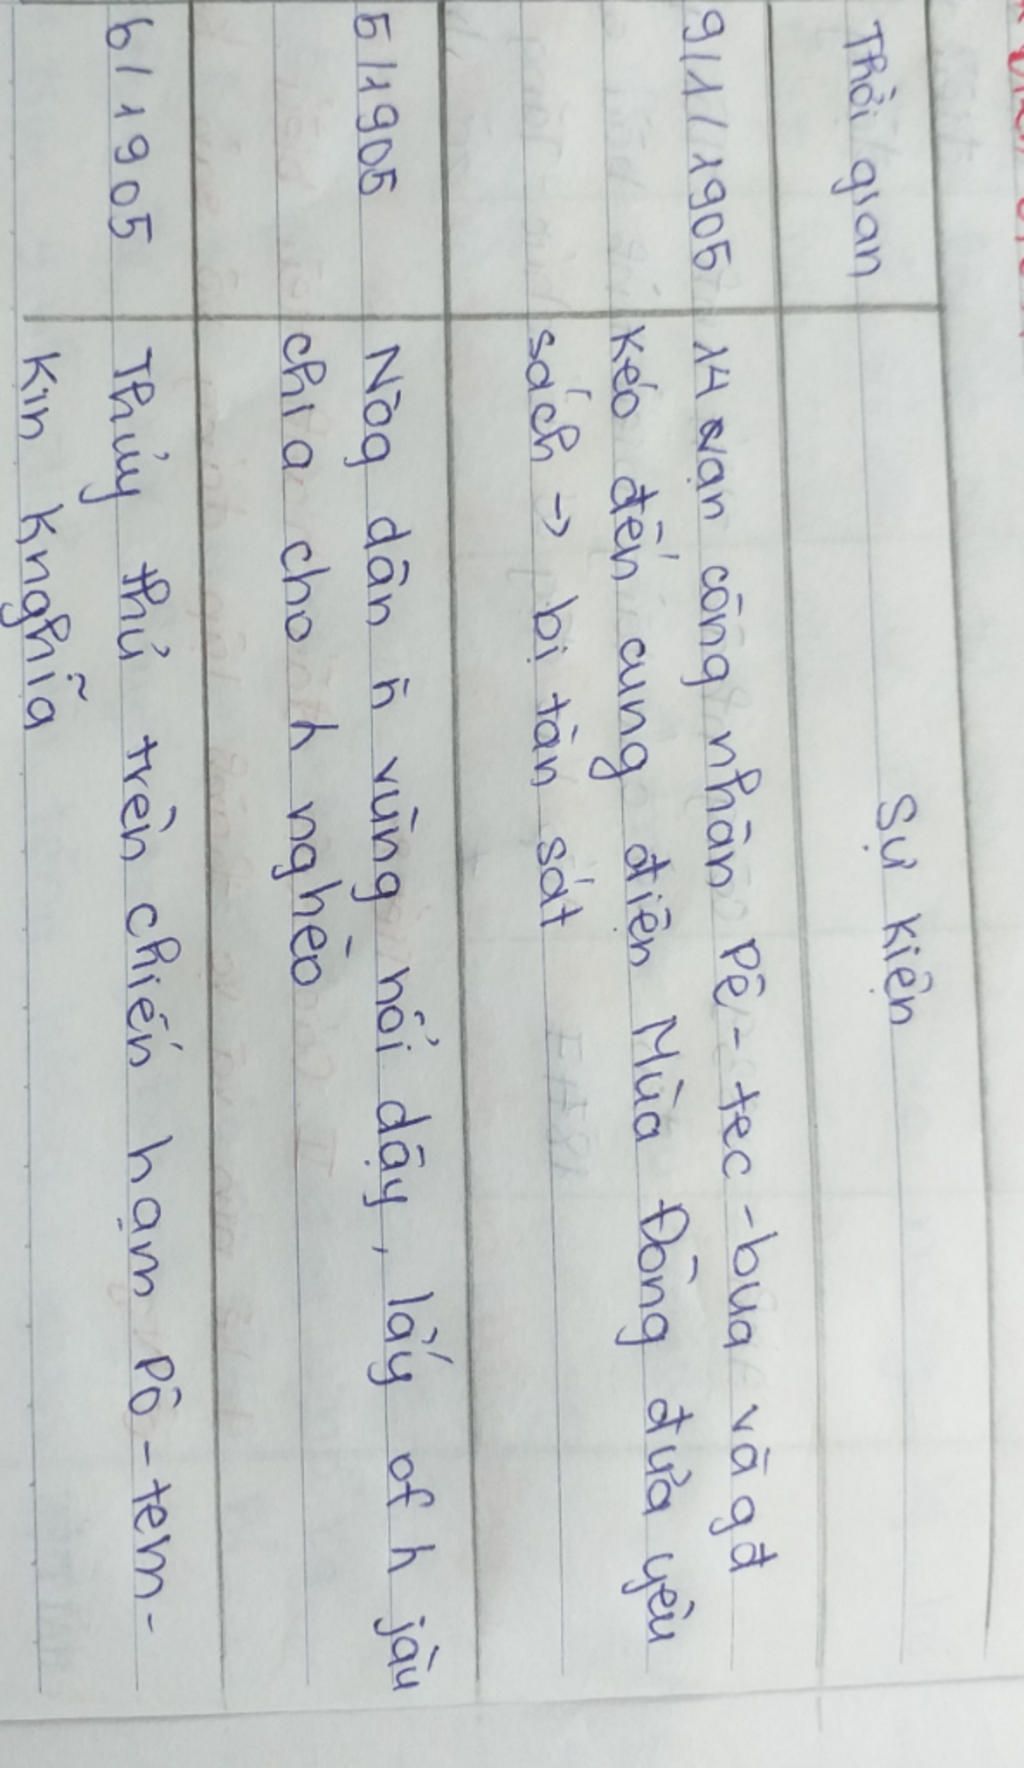 Thời gian
Sự kiện
9/1/1905
14 vạn công nhân Pê-tec-bua và gđ
kéo đến cung điện Mùa Đông đưa yêu
sách → bị tàn sát
5/1905
Nôg dân n̄ vùng nổi dậy, lấy of h
chia cho h nghèo
6/1905
Thủy thủ trên chiến hạm Pô-tem-
kin knghĩa